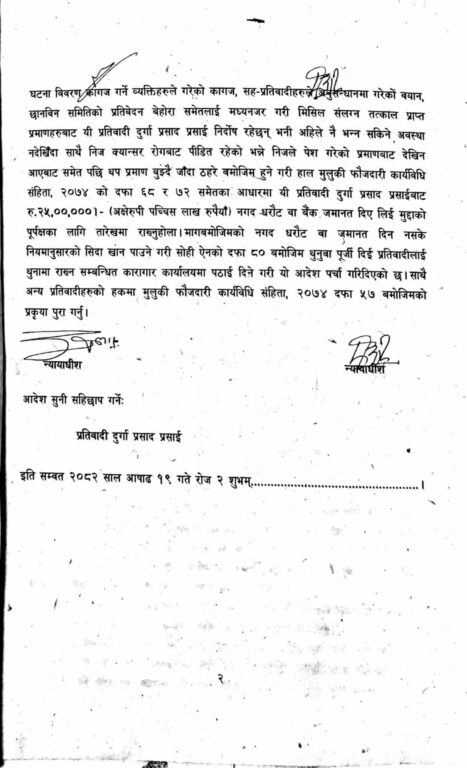 घटना विवरण कागज गर्ने व्यक्तिहरुले गरेको कागज, सह-प्रतिवादीहरुले अनुसन्धानमा गरेको बयान,
छानविन समितिको प्रतिवेदन बेहोरा समेतलाई मध्यनजर गरी मिसिल संलग्न तत्काल प्राप्त
प्रमाणहरुबाट यी प्रतिवादी दुर्गा प्रसाद प्रसाई निर्दोष रहेछन् भनी अहिले नै भन्न सकिने अवस्था
नदेखिँदा साथै निज क्यान्सर रोगबाट पीडित रहेको भन्ने निजले पेश गरेको प्रमाणबाट देखिन
आएबाट समेत पछि थप प्रमाण बुझ्दै जाँदा ठहरे बमोजिम हुने गरी हाल मुलुकी फौजदारी कार्यविधि
संहिता, २०७४ को दफा ६८ र ७२ समेतका आधारमा यी प्रतिवादी दुर्गा प्रसाद प्रसाईबाट
रु.२५,००,०००।- (अक्षेरुपी पच्चिस लाख रुपैयाँ) नगद धरौट वा बैंक जमानत दिए लिई मुद्दाको
पूर्पक्षका लागि तारेखमा राख्नुहोला। मागबमोजिमको नगद धरौट वा जमानत दिन नसके
नियमानुसारको सिदा खान पाउने गरी सोही ऐनको दफा ८० बमोजिम थुनुवा पूर्जी दिई प्रतिवादीलाई
थुनामा राख्न सम्बन्धित कारागार कार्यालयमा पठाई दिने गरी यो आदेश पर्चा गरिदिएको छ। साथै
अन्य प्रतिवादीहरुको हकमा मुलुकी फौजदारी कार्यविधि संहिता, २०७४ दफा ५७ बमोजिमको
प्रकृया पुरा गर्नु।
न्यायाधीश न्यायाधीश
आदेश सुनी सहिछाप गर्नेः
प्रतिवादी दुर्गा प्रसाद प्रसाई
इति सम्वत २०८२ साल आषाढ १९ गते रोज २ शुभम्..........................................।
२